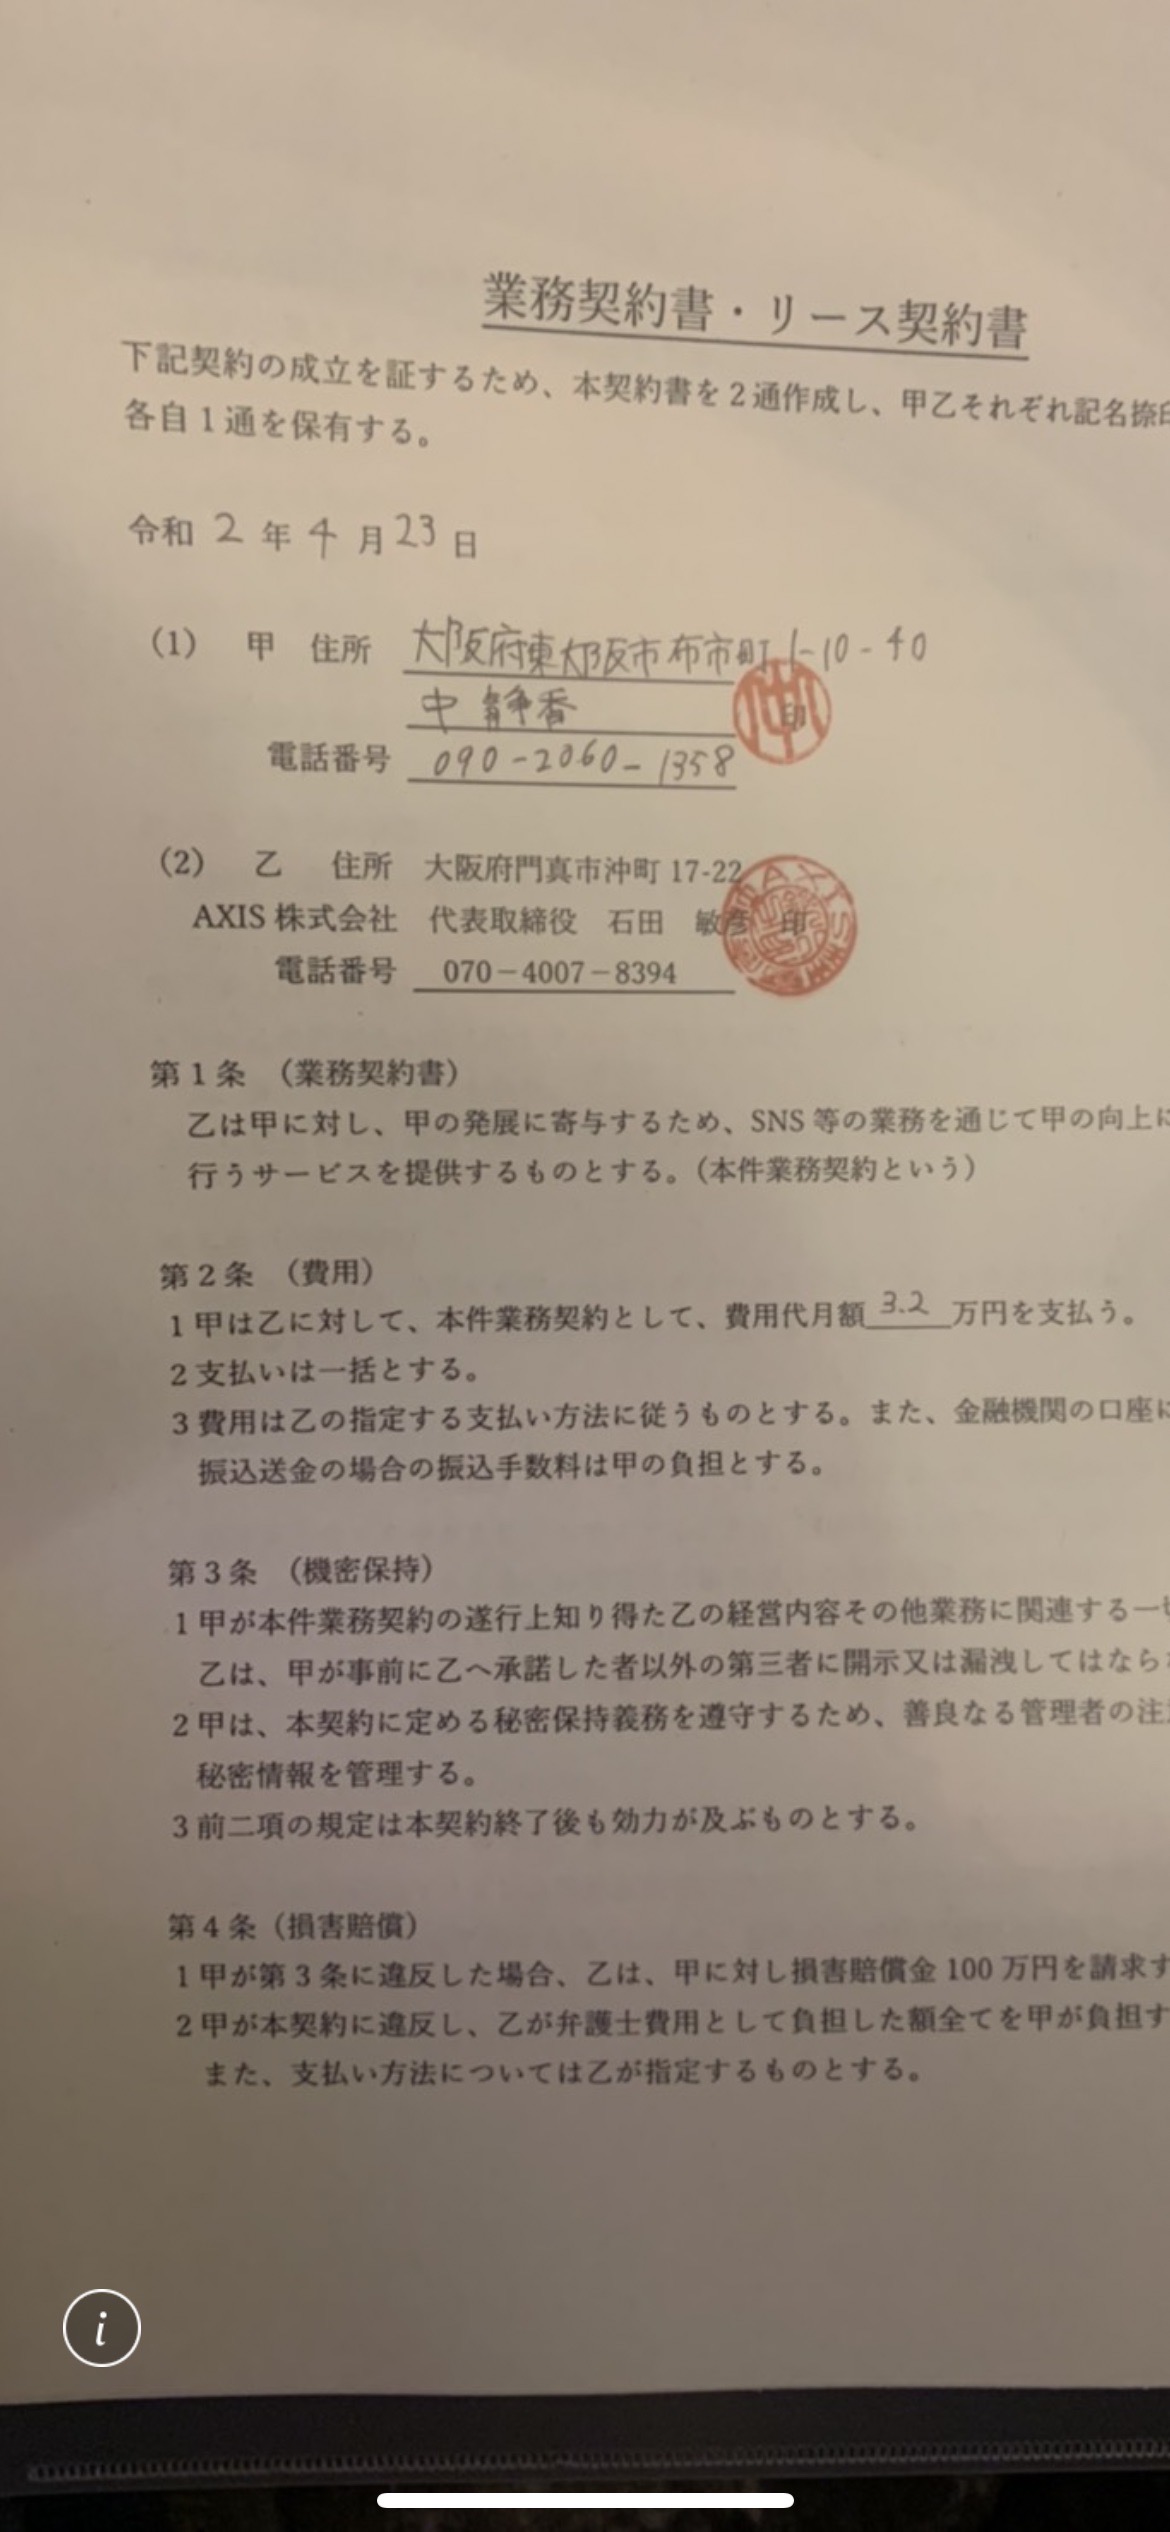 業務契約書・リース契約書
下記契約の成立を証するため、本契約書を2通作成し、甲乙それぞれ記名捺印
各自1通を保有する。
令和 2 年 4 月 23 日
(1) 甲 住所 大阪府東大阪市布市町1-10-40
中 静香 印
電話番号 090-2060-1358
(2) 乙 住所 大阪府門真市沖町 17-22
AXIS 株式会社 代表取締役 石田 敏彦 印
電話番号 070-4007-8394
第1条 (業務契約書)
乙は甲に対し、甲の発展に寄与するため、SNS 等の業務を通じて甲の向上に
行うサービスを提供するものとする。(本件業務契約という)
第2条 (費用)
1 甲は乙に対して、本件業務契約として、費用代月額 3.2 万円を支払う。
2 支払いは一括とする。
3 費用は乙の指定する支払い方法に従うものとする。また、金融機関の口座に
振込送金の場合の振込手数料は甲の負担とする。
第3条 (機密保持)
1 甲が本件業務契約の遂行上知り得た乙の経営内容その他業務に関連する一切
乙は、甲が事前に乙へ承諾した者以外の第三者に開示又は漏洩してはならな
2 甲は、本契約に定める秘密保持義務を遵守するため、善良なる管理者の注意
秘密情報を管理する。
3 前二項の規定は本契約終了後も効力が及ぶものとする。
第4条 (損害賠償)
1 甲が第3条に違反した場合、乙は、甲に対し損害賠償金 100 万円を請求す
2 甲が本契約に違反し、乙が弁護士費用として負担した額全てを甲が負担す
また、支払い方法については乙が指定するものとする。